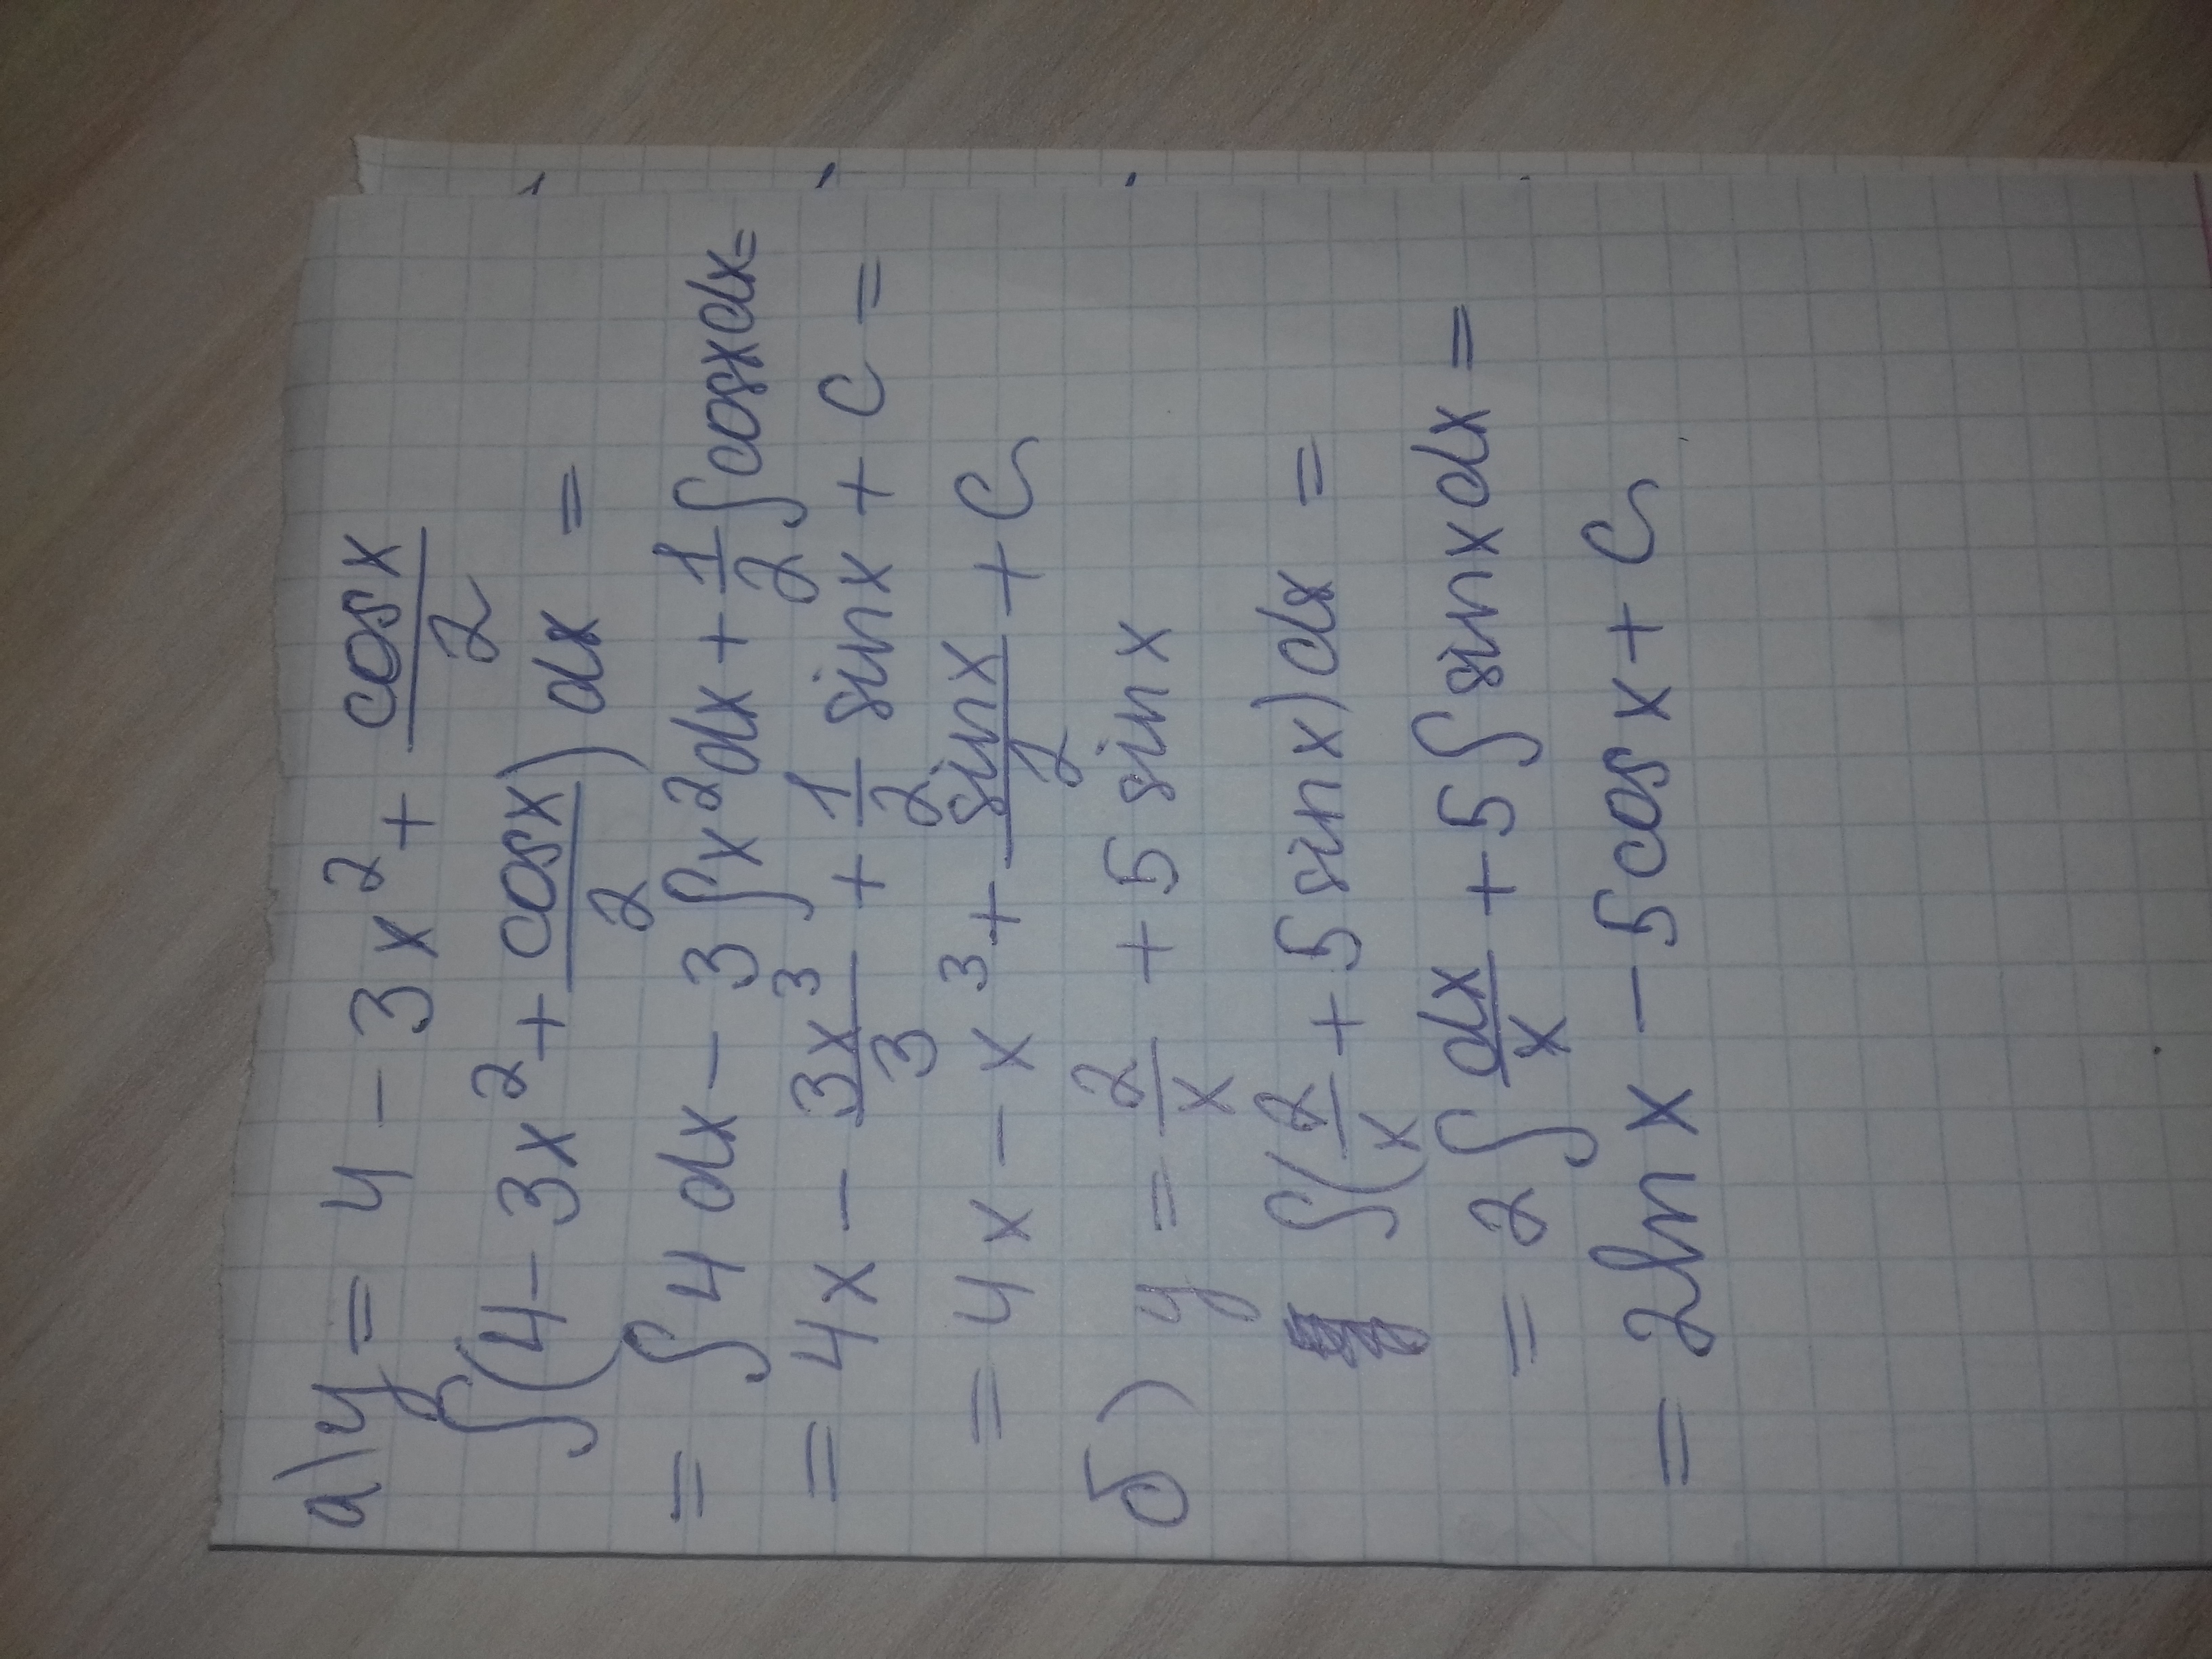 а) y = 4 - 3x² + cosx/2
∫(4 - 3x² + cosx/2)dx =
= ∫4dx - 3∫x²dx + 1/2∫cosxdx =
= 4x - 3x³/3 + 1/2 sinx + C =
= 4x - x³ + sinx/2 + C
б) y = 2/x + 5 sinx
∫(2/x + 5sinx)dx =
= 2∫dx/x + 5∫sinxdx =
= 2lnx - 5cosx + C